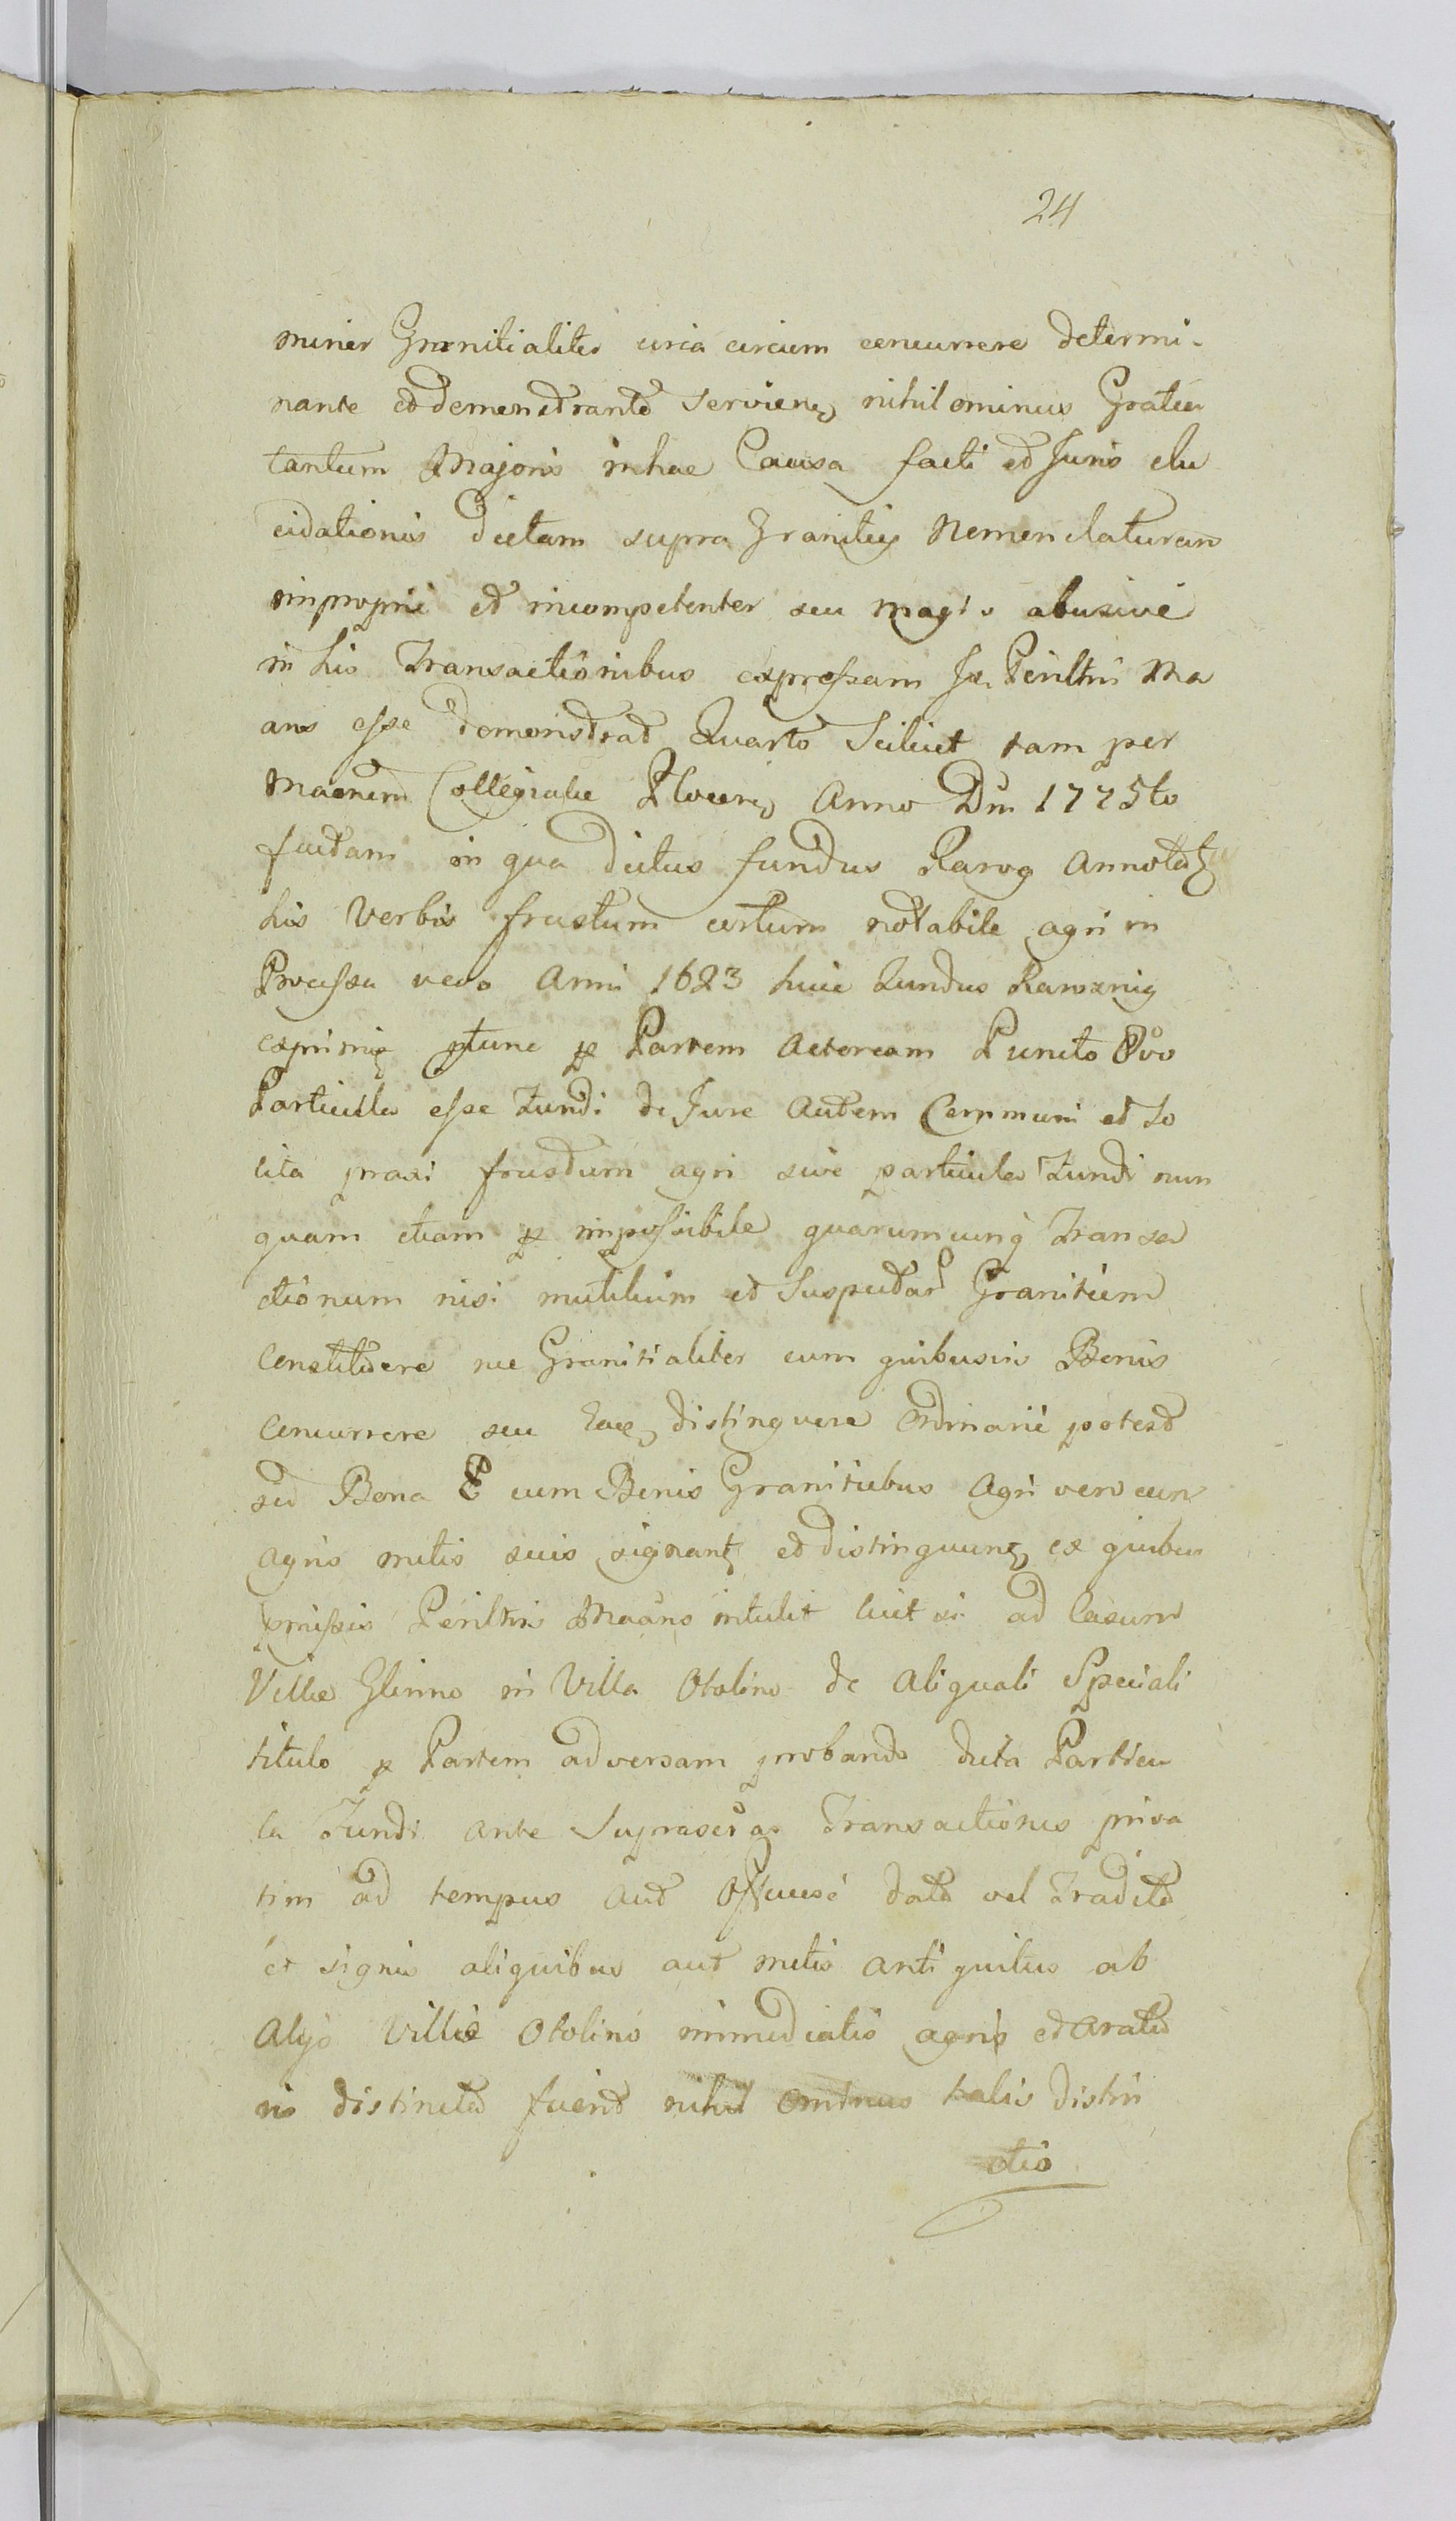 24
miner Granitialiter circa circum concurrere determi-
nante et demonstrante serviens nihilominus Gratia
tantum Majoris in hac Causa facti et Juris elu
cidationis dictam supra Granities Nomenclaturam
improprie et incompetenter seu magis abusive
in his Transactionibus expressam Perilltris Ma
ans esse demonstrat Quarto Scilicet tam per
Collegiatae Plocen Anno Dni 1775to
factam in qua dictus fundus Rarog annotat
his Verbis frustum certum notabile agri in
Processu vero Anni 1623 huic Fundus Raroznig
exprimit tunc p Partem Actoream Puncto 8vo
Particula esse Fundi de Jure autem Communi et So
lita praxi frustum agri sive particula Fundi nun
quam etiam p impossibile quarumcunq Transa
ctionum nisi mutilum et Suspectar Granitiem
Constituere nec Granitialiter cum quibusvis Bonis
Concurrere seu distinguere Ordinarie potest
sed Bona cum Bonis Granitiebus Agri vero cum
agris metis suis signant et distinguunt ex quibus
pmissis Perilltris Maans intulit licet si ad Casum
Villae Glinno in Villa Otolino de aliquali Speciali
titulo p Partem adversam probando dicta Particu
la Fundi ante Suprascras Transactiones priva
tim ad tempus aut data vel tradita
et signis aliquibus aut metis antiquitus ab
Alijs Villae Otolino immediatis agris et aratu
ris distincta fuerit nihil ominus talis distin
ctio